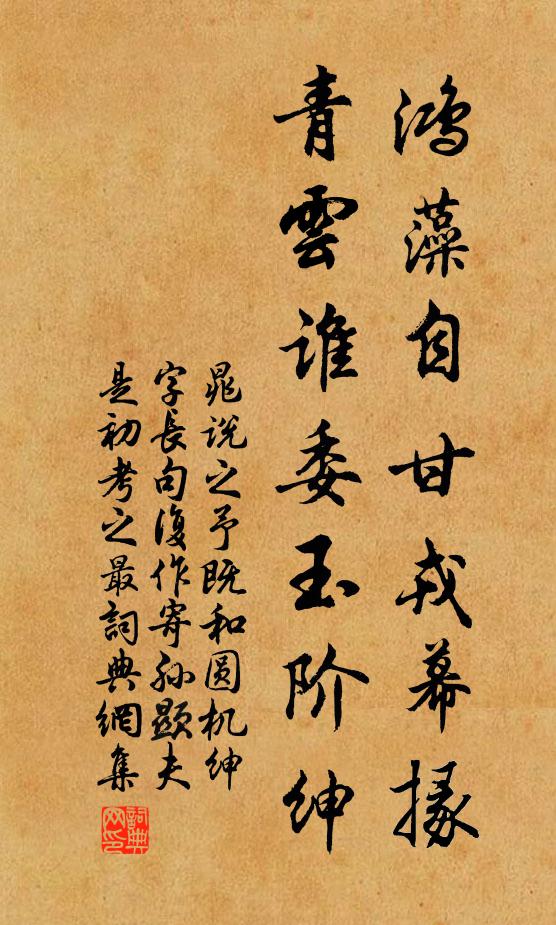 鸿藻自甘戎幕掾
青雲谁委玉阶绅
晁说之予既和圆机绅
字長句復作寄孙顯夫
是初考之最詞典網集
詞典网印